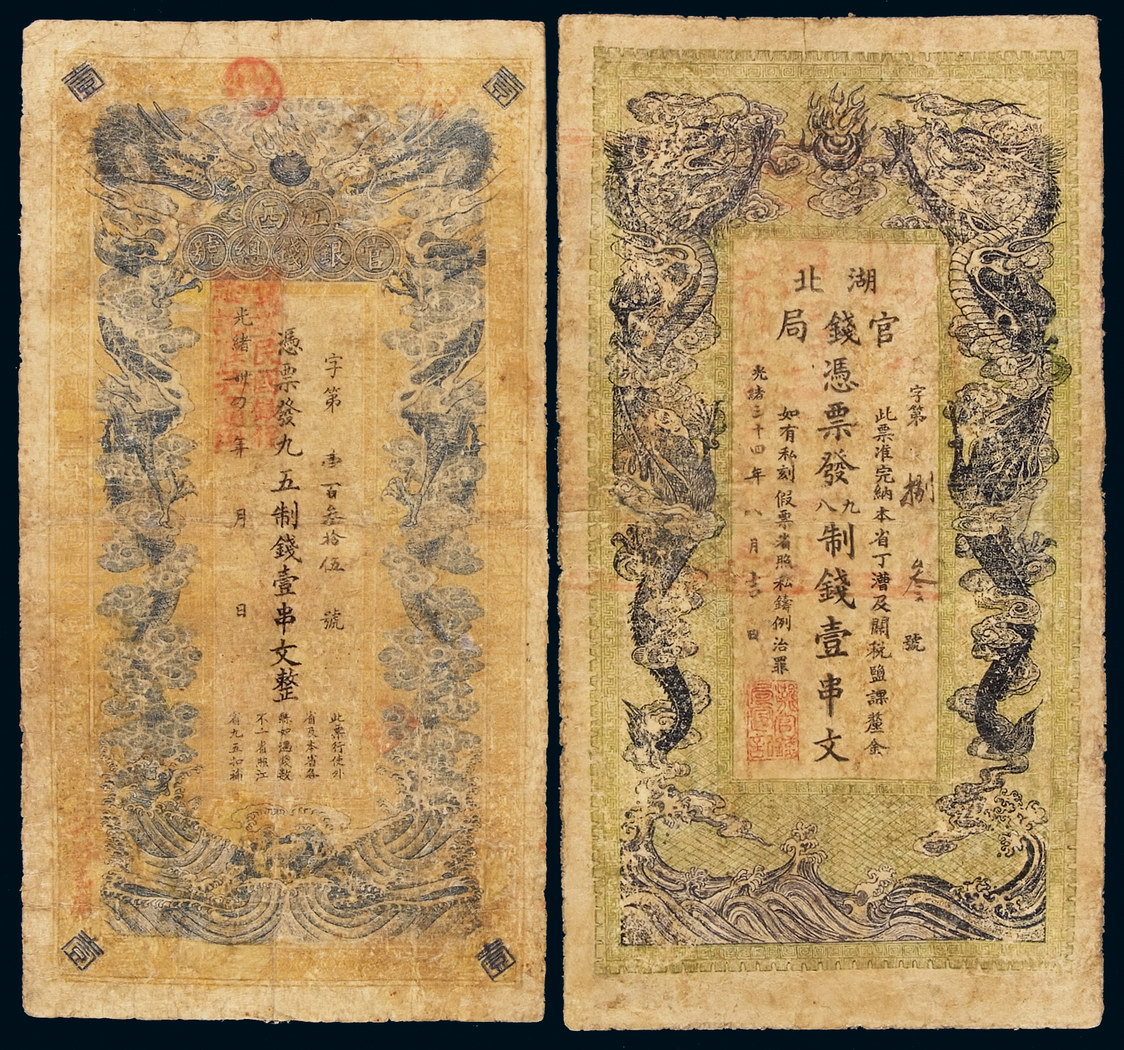 壹
壹
江西
官銀錢總號
字第 壹百叁拾伍 號
憑票發九五制錢壹串文整
光緒卅 年 月 日
此票行使外
省及本省各
不二省照江
省九五扣補
壹
壹
湖北
官錢局
字第 捌 叁 號
此票准完納本省丁漕及關稅鹽課釐金
憑票發九八制錢壹串文
如有私刻假票省照私鑄例治罪
光緒三十四年八月吉日